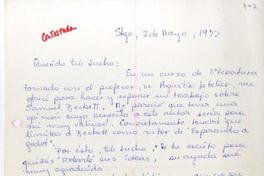 Contestada
Stgo, 2 de Mayo, 1972
Querido tío Lucho:
En un curso de literatura
tomado con el profesor, Sr Agustín Letelier, me
ofrecí para hacer y exponer un trabajo sobre
Samuel Beckett. Me pareció que tener una
opinión suya respecto a este autor sería para
mi muy valioso. Concretamente tendré que
limitar a Beckett como autor de "Esperando a
godot".
Por ésto, tío Lucho, le escribo para
sus ideas, su ayuda será
muy agradecida